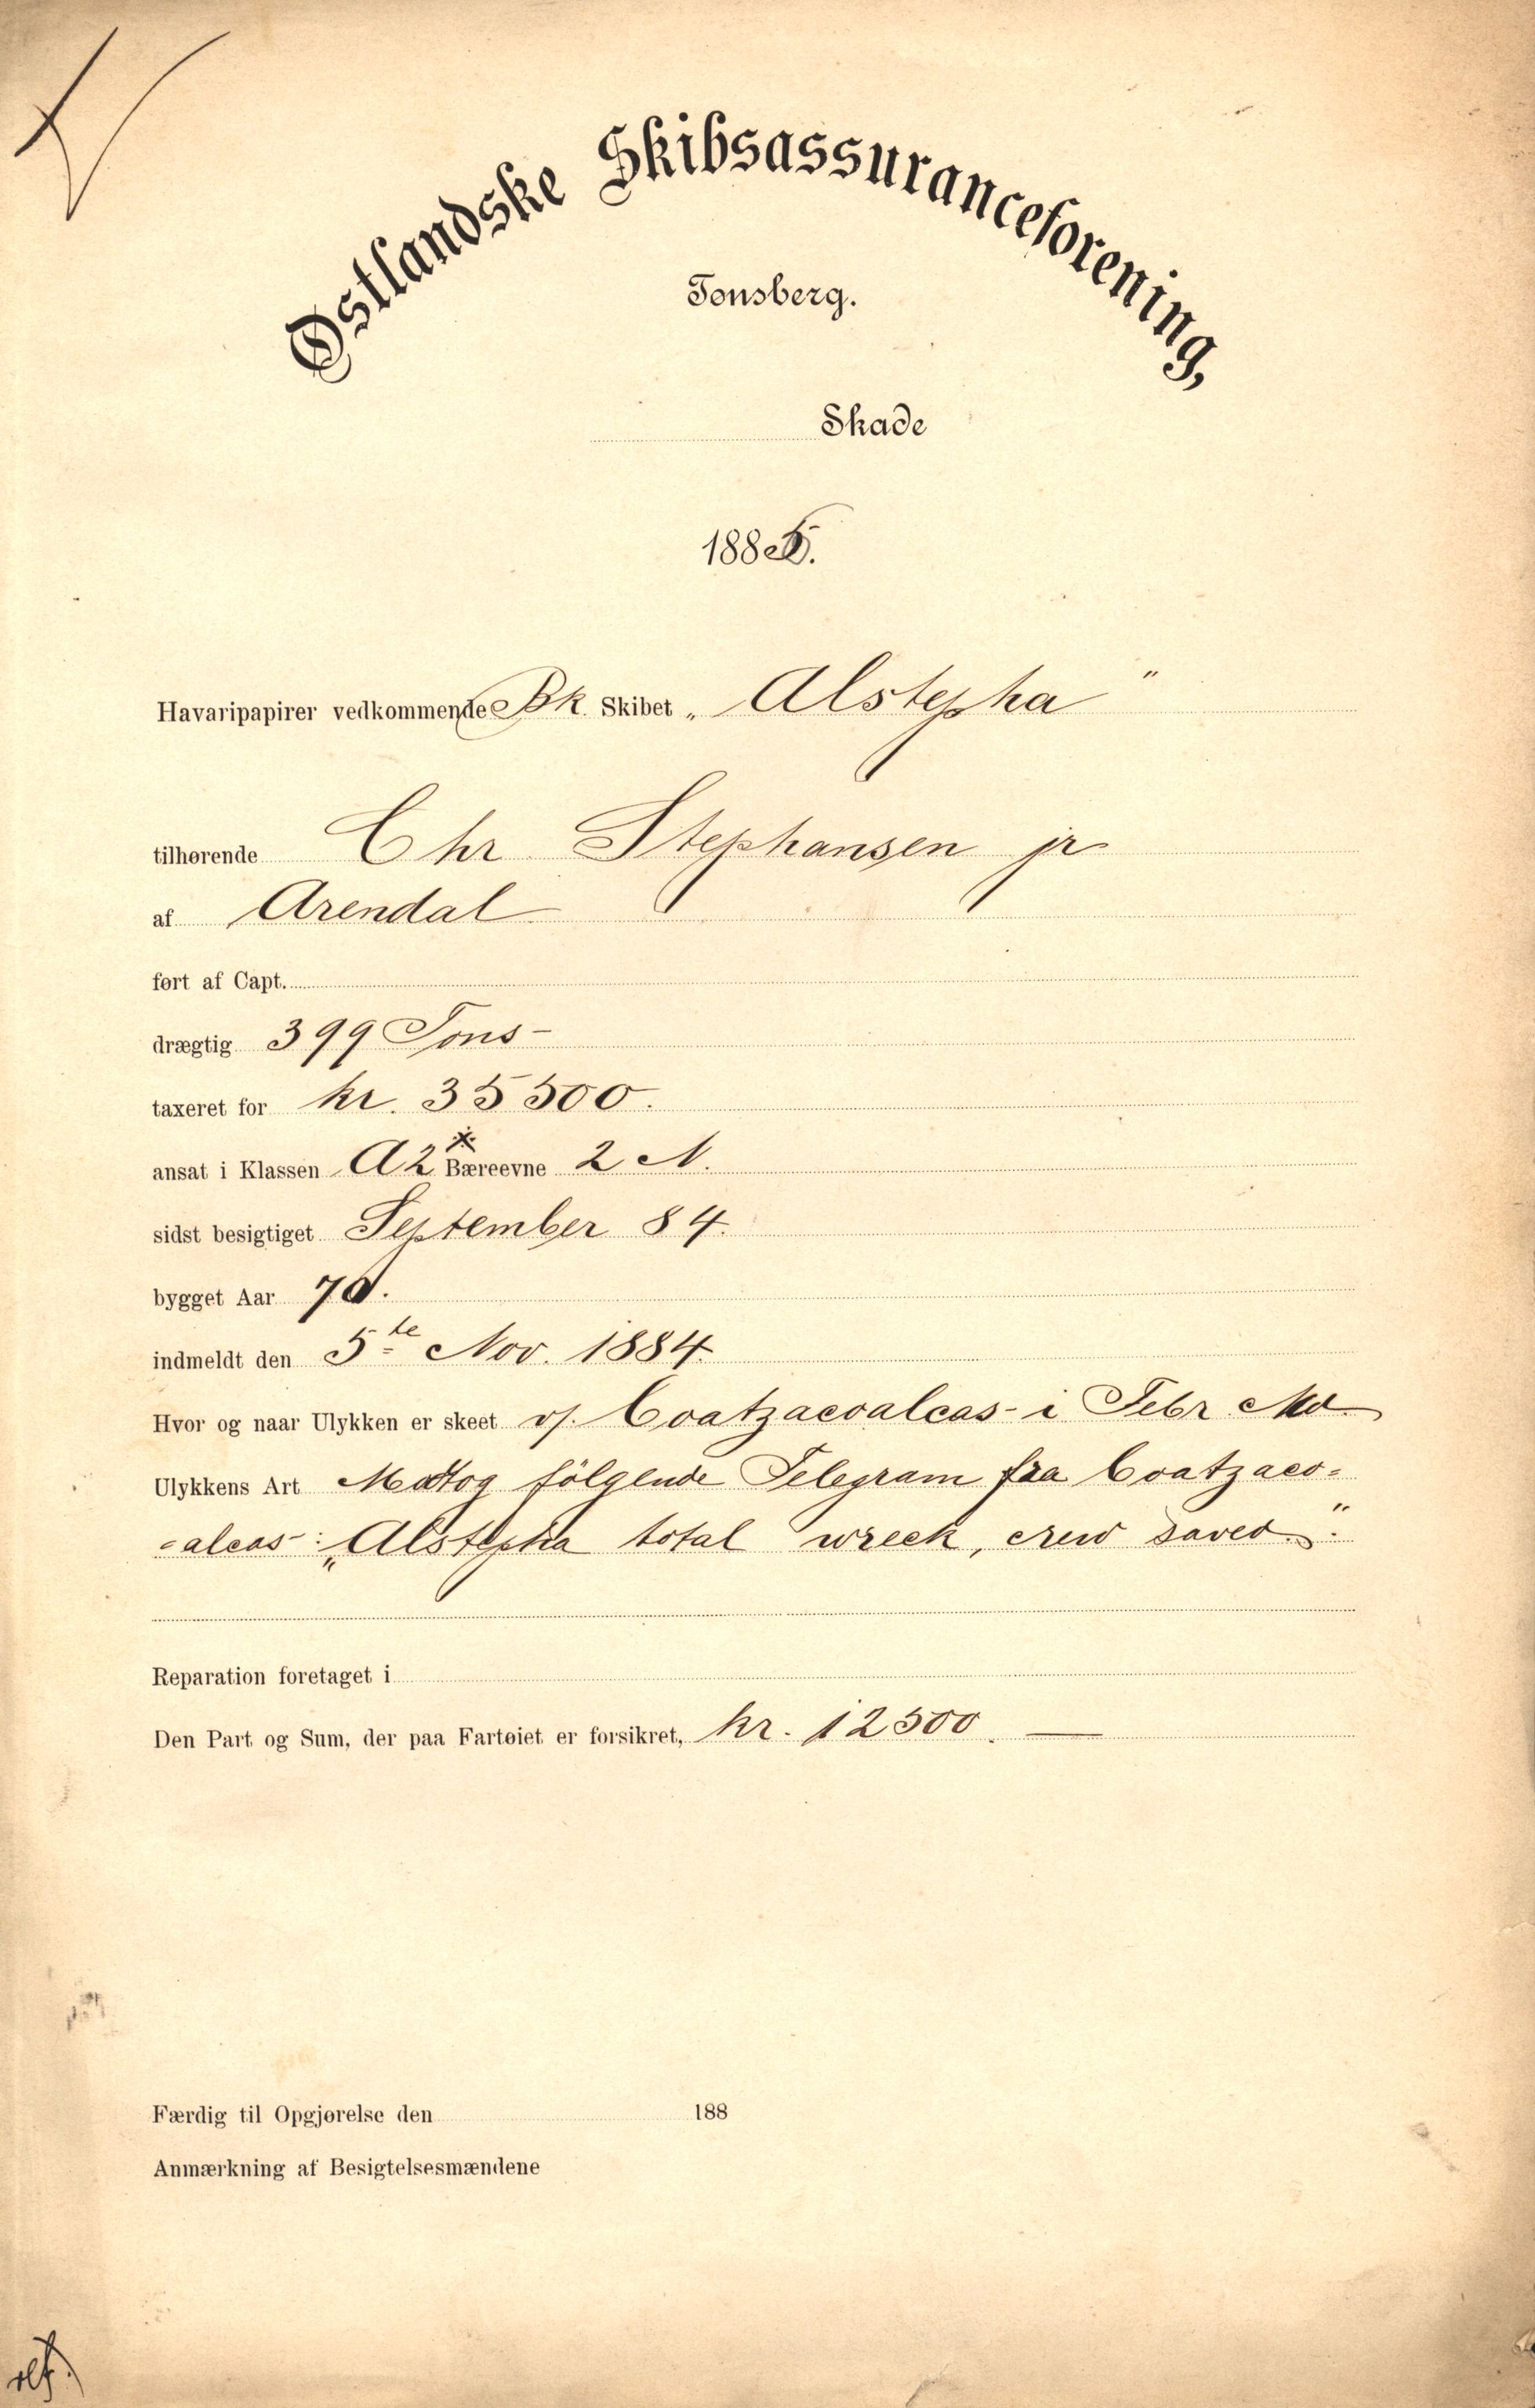 Østlandske Skibsassuranceforening,
Tønsberg.
Skade
1885.
Havaripapirer vedkommende Bk. Skibet „Alstepha"
tilhørende Chr Stephansen jr
af Arendal
ført af Capt.
drægtig 399 Tons -
taxeret for kr. 35500.
ansat i Klassen A2 Bæreevne 2 N.
sidst besigtiget September 84.
bygget Aar 70.
indmeldt den 5te Nov. 1884.
Hvor og naar Ulykken er skeet v/. Coatzacoalcas - i Febr. Md.
Ulykkens Art Modtog følgende Telegram fra Coatzaco=
=alcas -: „Alstepha total wreck, crew saved.".
Reparation foretaget i
Den Part og Sum, der paa Fartøiet er forsikret, kr. 12500. —
Færdig til Opgjørelse den 188
Anmærkning af Besigtelsesmændene